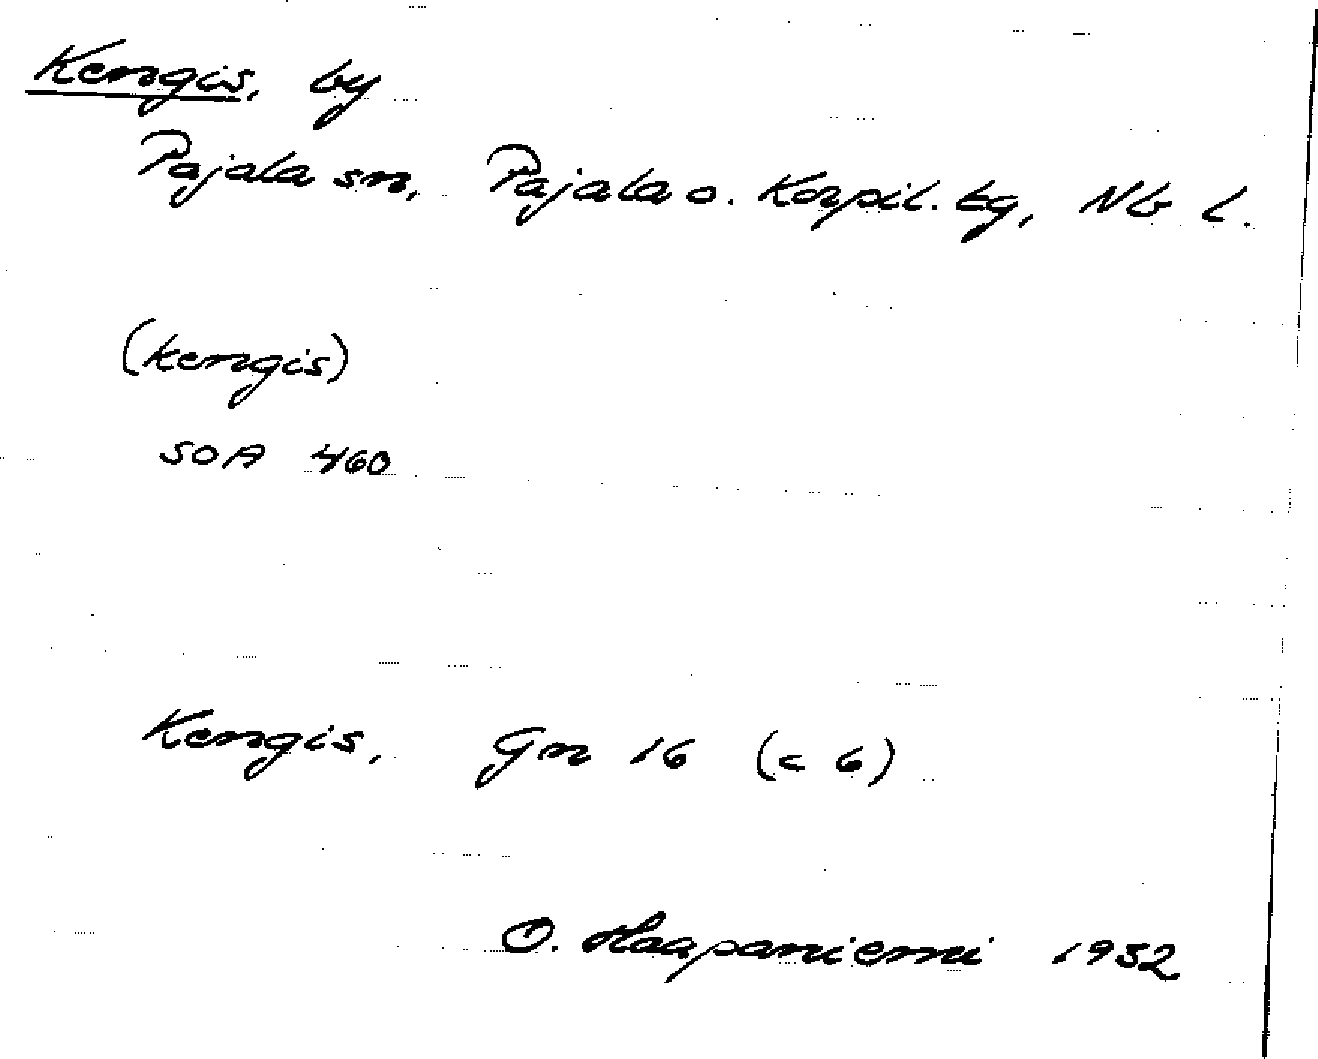 Kengis, by
Pajala sn, Pajala o. Korpil. tg, Nb l.
(kengis)
SOA 460
Kengis, Gn 16 (c 6)
O. Haapaniemi 1952